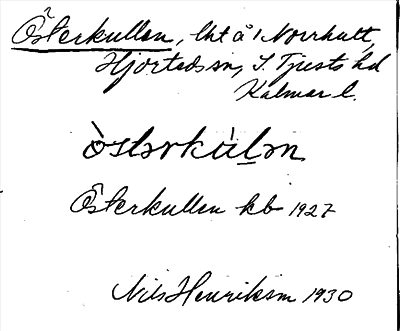 Österkullen, lht å 1 Norrhult,
Hjorteds sn, S. Tjusts hd
Kalmar l.
òstərkùḷən
Österkullen kb 1927
Nils Henriksson 1930